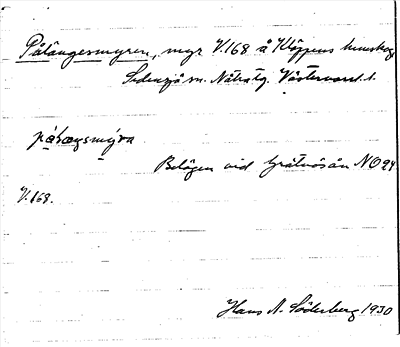 Pålängesmyren, myr V.168 å Klöppens hemskog
Sidensjö sn. Nätra tg. Västernorrl. l.
Belägen vid Grätnäsån NO 94
V.168.
Hans A. Söderberg 1930